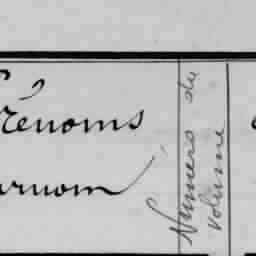 Prénoms
surnom
Numéro du
volume